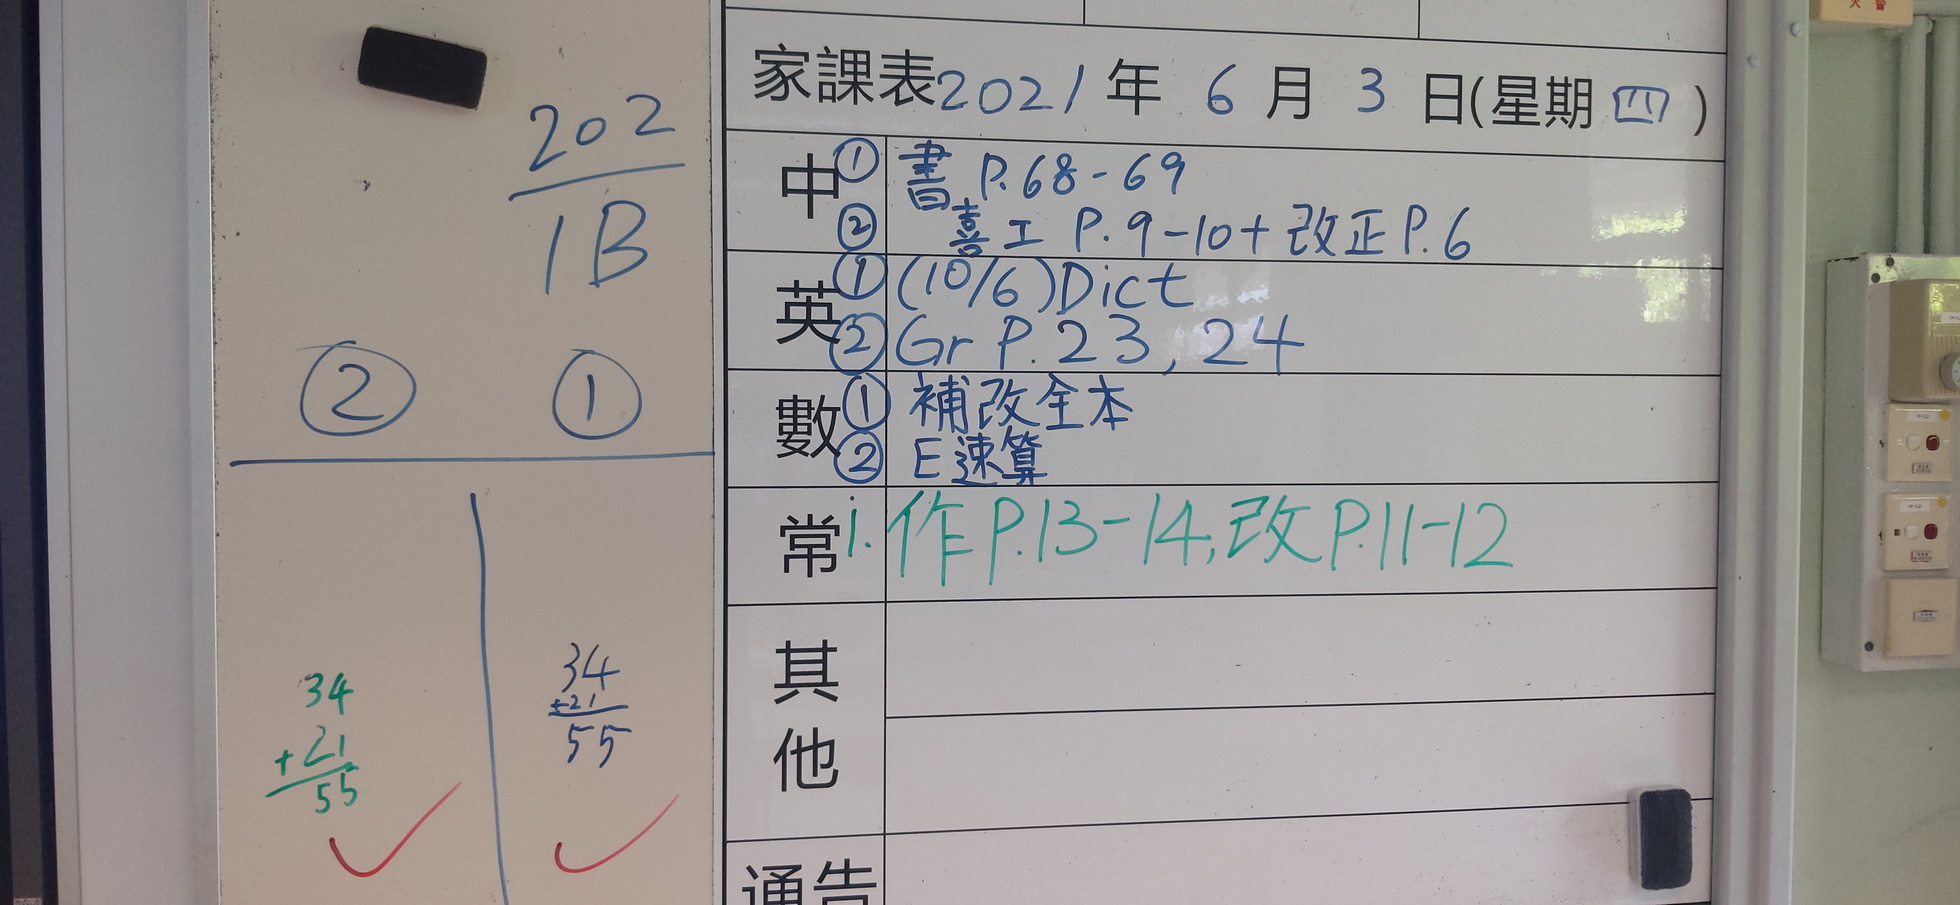 202
1B
② ①
34
+21
55
34
+21
55
家課表2021年 6 月 3 日(星期四)
中① 書 P.68-69
② 喜工 P.9-10+改正P.6
英① (10/6)Dict
② Gr P.23,24
數① 補改全本
② E速算
常1. 作P.13-14,改P.11-12
其他
通告